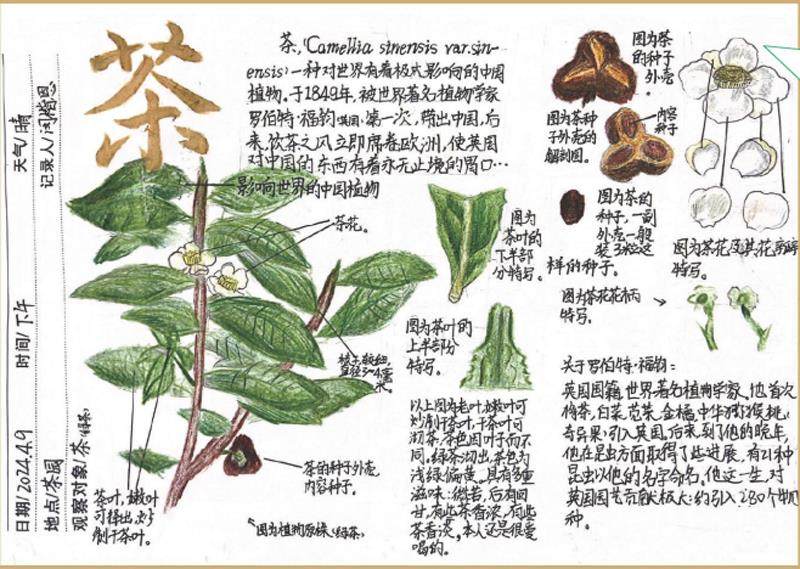 茶
茶,(Camellia sinensis var.sin-
ensis)一种对世界有着极大影响的中国
植物。于1849年,被世界著名植物学家
罗伯特·福钧(英国)第一次,带出中国,后
来,饮茶之风立即席卷欧洲,使英国
对中国的东西有着永无止境的胃口…
影响向世界的中国植物
天气/晴
记录人/闵
时间/下午
日期/2024.4.9
地点/茶园
观察对象/茶(绿茶)
茶花。
枝干较细,
直径3~4毫
米。
茶的种子外壳,
内容种子。
茶叶,嫩叶
可得出,炒
制干茶叶。
"图为植物原株(绿茶)
图为
茶叶的
下半部
分特写。
图为茶叶的
上半部分
特写。
以上图为老叶,嫩叶可
炒制干茶叶,干茶叶可
沏茶,茶色因叶子而不
同。绿茶沏出,茶色为
浅绿偏黄,具有多重
滋味:微苦,后有回
甘,有些茶香浓,有些
茶香淡,本人还是很爱
喝的。
图为茶
的种子
外壳。
图为茶种
子外壳的
解剖图。
内容
种子
图为茶的
种子,一副
外壳一般
装3粒这
样的种子。
图为茶花及其花
特写。
图为茶花花柄
特写。
关于罗伯特·福钧:
英国国籍,世界著名植物学家,他首次
将茶,白菜,金橘,中华猕猴桃(
奇异果)引入英国,后来,到了他的晚年,
他在昆虫方面取得了些进展,有21种
昆虫以他的名字命名,他这一生,对
英国园艺贡献极大:约引入280个物
种。